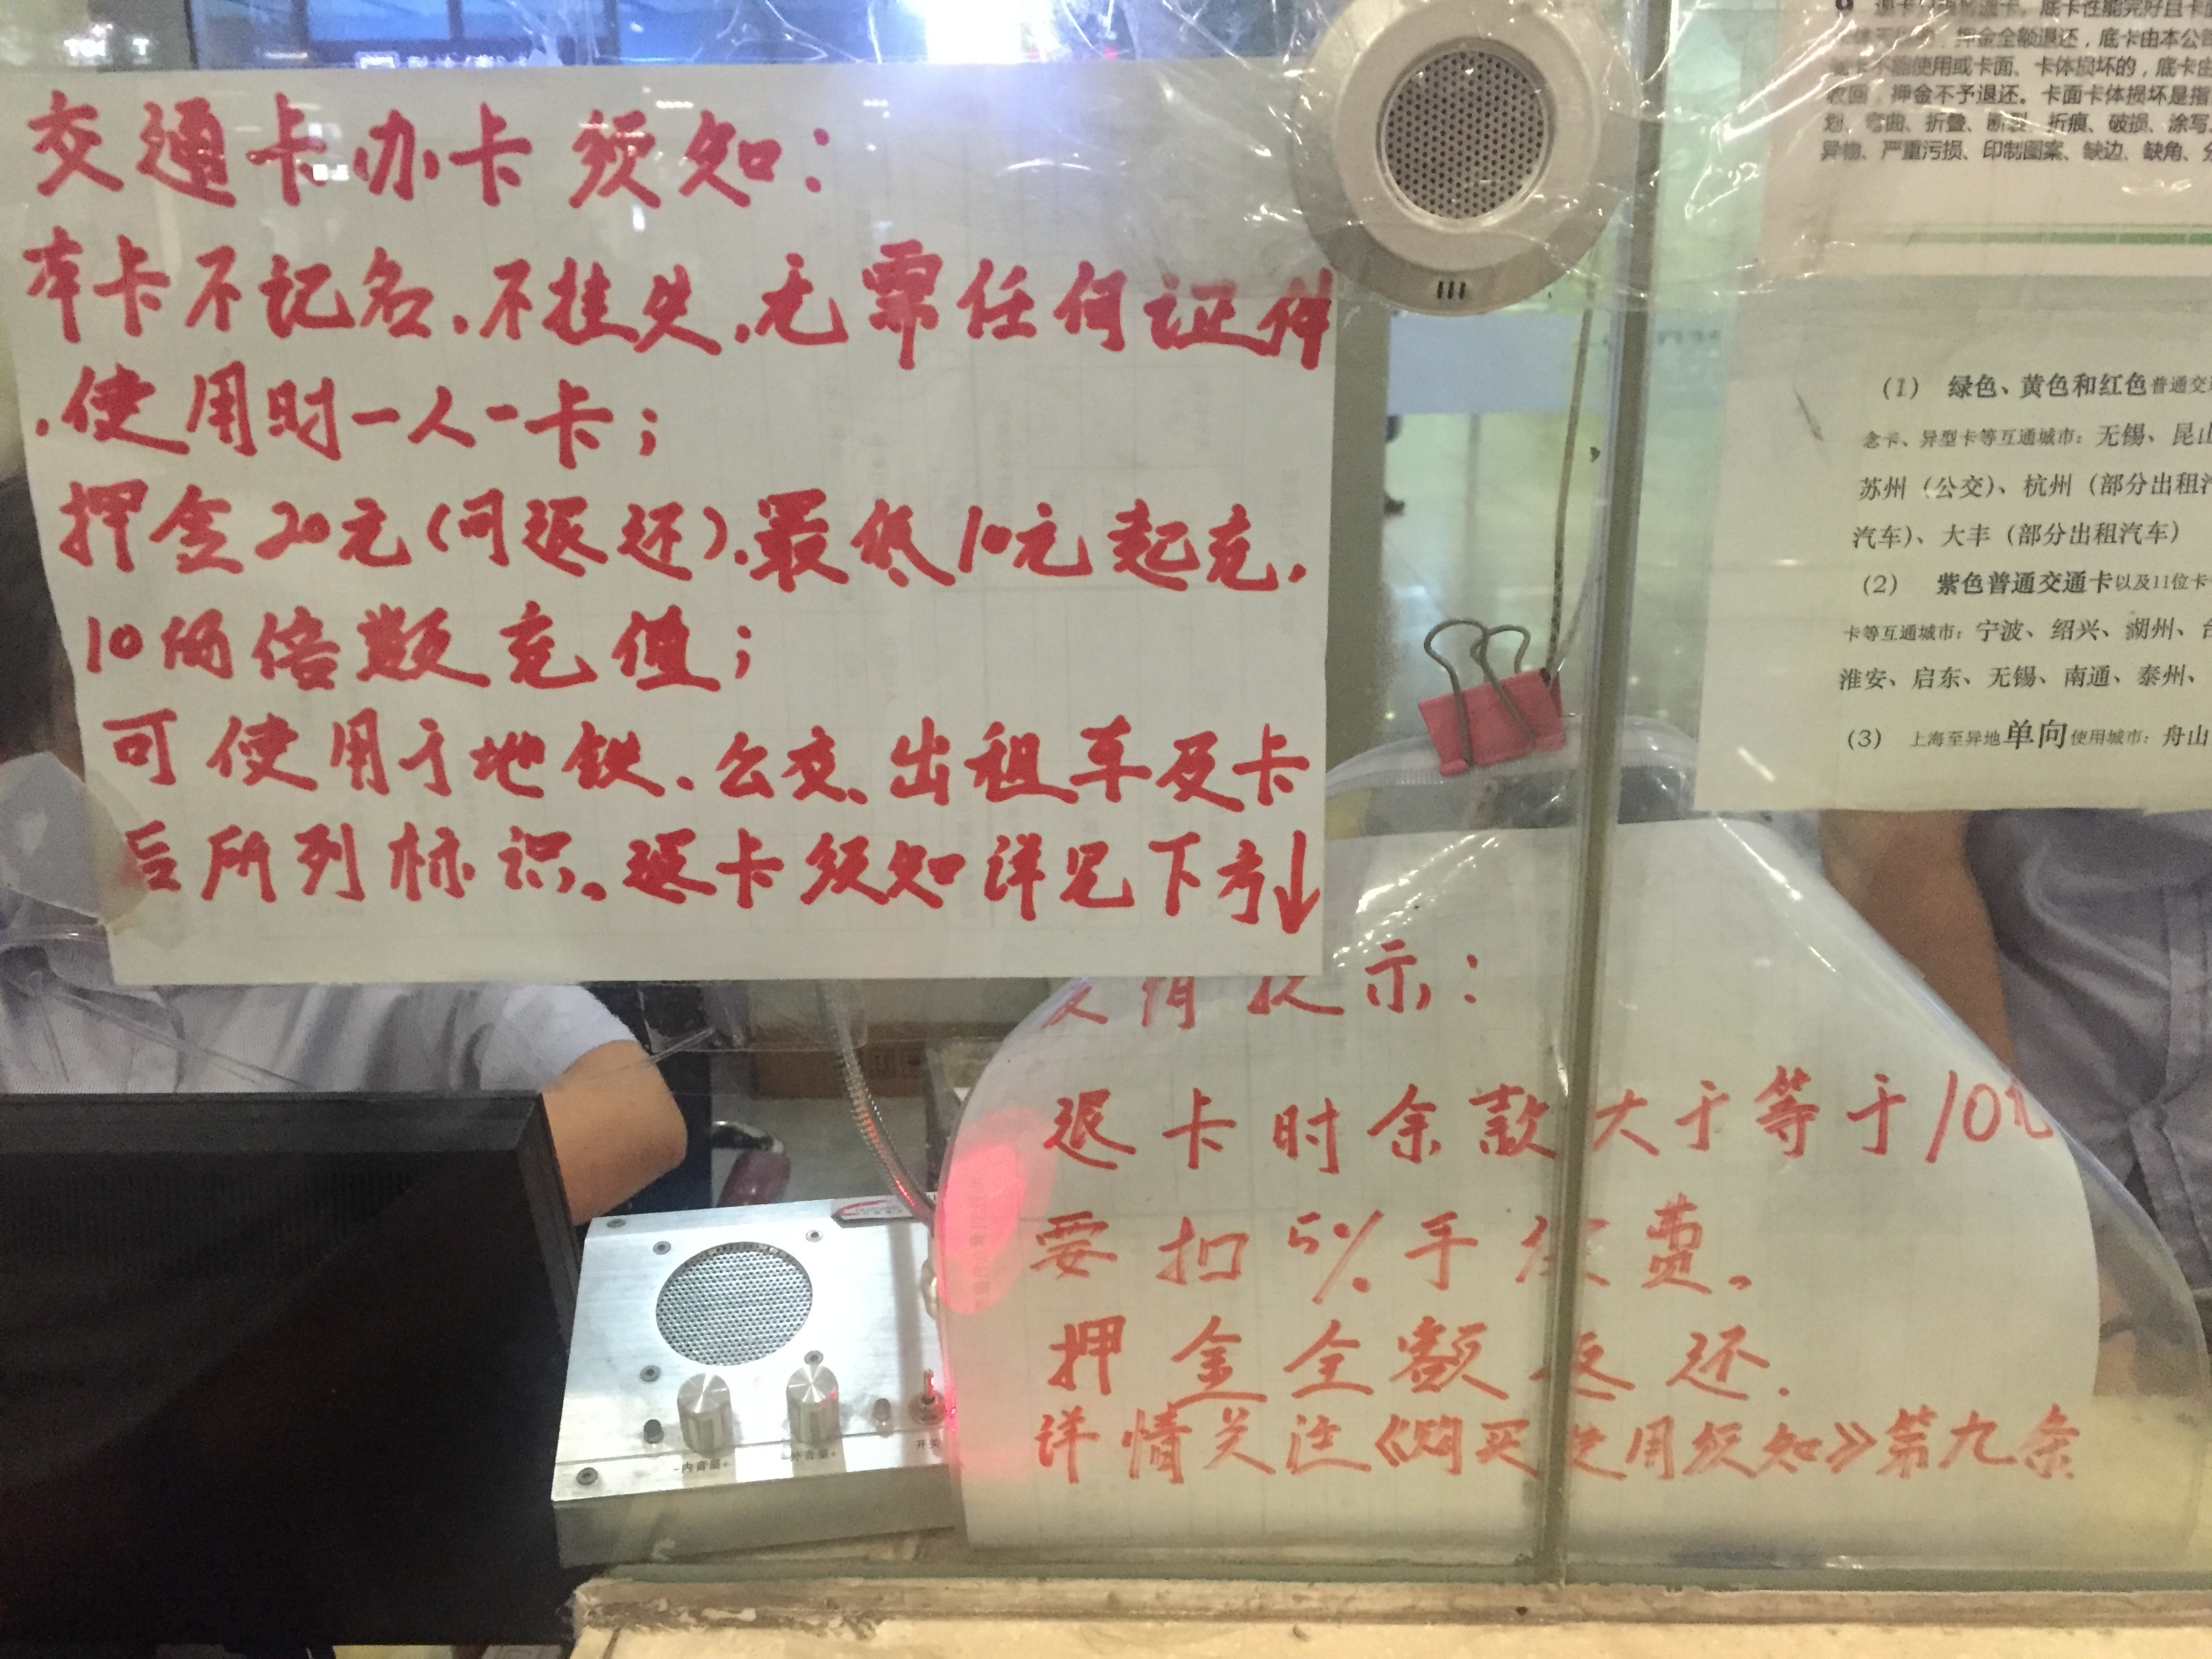 交通卡办卡须知：
本卡不记名.不挂失.无需任何证件
.使用时一人一卡；
押金20元(可退还).最低10元起充.
10的倍数充值；
可使用于地铁.公交.出租车及卡
后所列标识。退卡须知详见下方↓
情提示：
退卡时余款大于等于10元
要扣5%手续费。
押金全额返还.
详情关注《购买使用须知》第九条
-内音量+
-外音量+
开关
底卡性能完好且卡
押金全额退还，底卡由本公司
不能使用或卡面、卡体损坏的，底卡由
收回，押金不予退还。卡面卡体损坏是指
划、弯曲、折叠、断裂、折痕、破损、涂写、
异物、严重污损、印制图案、缺边、缺角、分
(1) 绿色、黄色和红色普通交通
念卡、异型卡等互通城市：无锡、昆山
苏州（公交）、杭州（部分出租汽
汽车）、大丰（部分出租汽车）
(2) 紫色普通交通卡以及11位卡
卡等互通城市：宁波、绍兴、湖州、台
淮安、启东、无锡、南通、泰州、
(3) 上海至异地单向使用城市：舟山